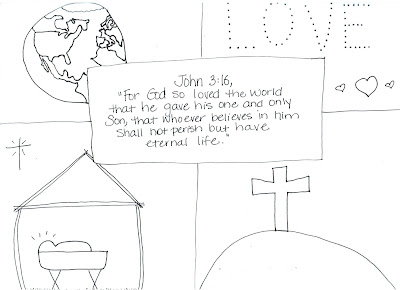 LOVE
John 3:16,
"For God so loved the world
that he gave his one and only
Son, that whoever believes in him
shall not perish but have
eternal life."